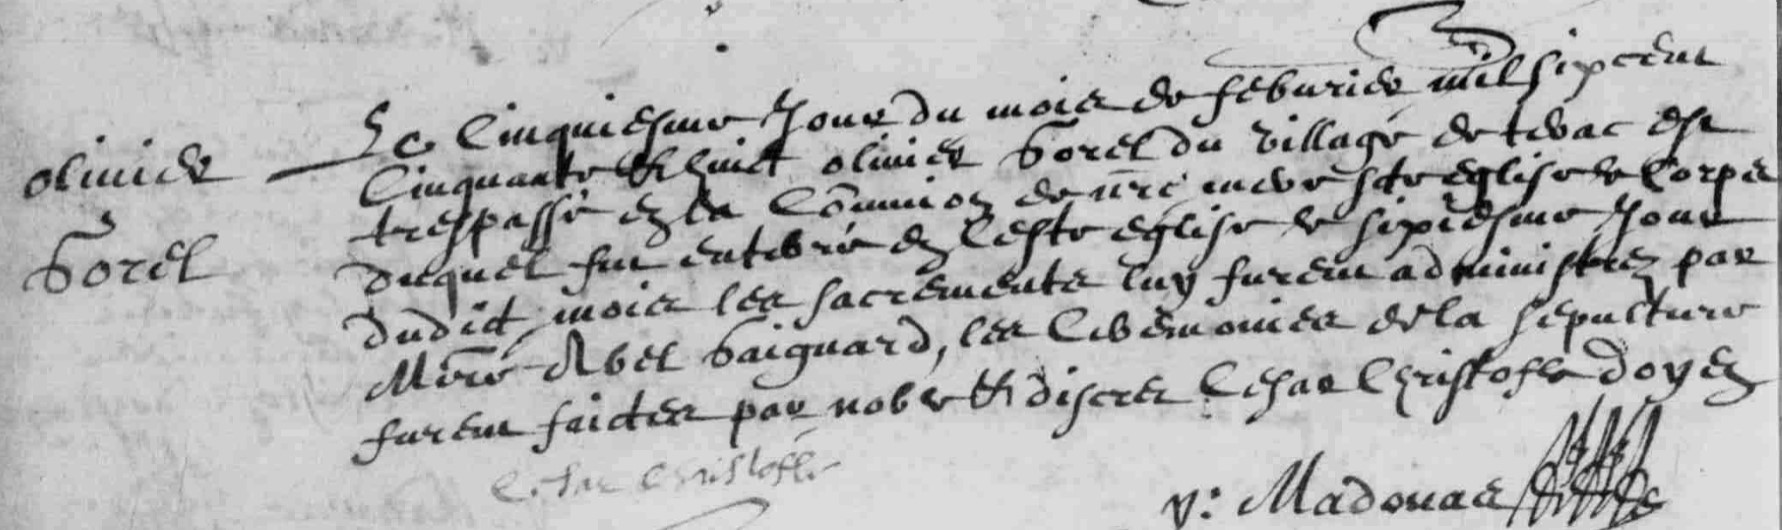 Le Cinquiesme Jour du mois de feburier mil six cent
olivier
Cinquante et huict olivier Sorel du village de tevac est
trespassé en la Comunion de nre mere ste eglise le Corps
Sorel
duquel fut enterré en ceste eglise le sixiesme Jour
dudict mois les sacrements luy furent administrez par
Mere Abel Saiguard, les Ceremonies de la sepulture
furent faictes par noble et discret Cesar Christofle doyen
Cesar Christofle
y: Madouas